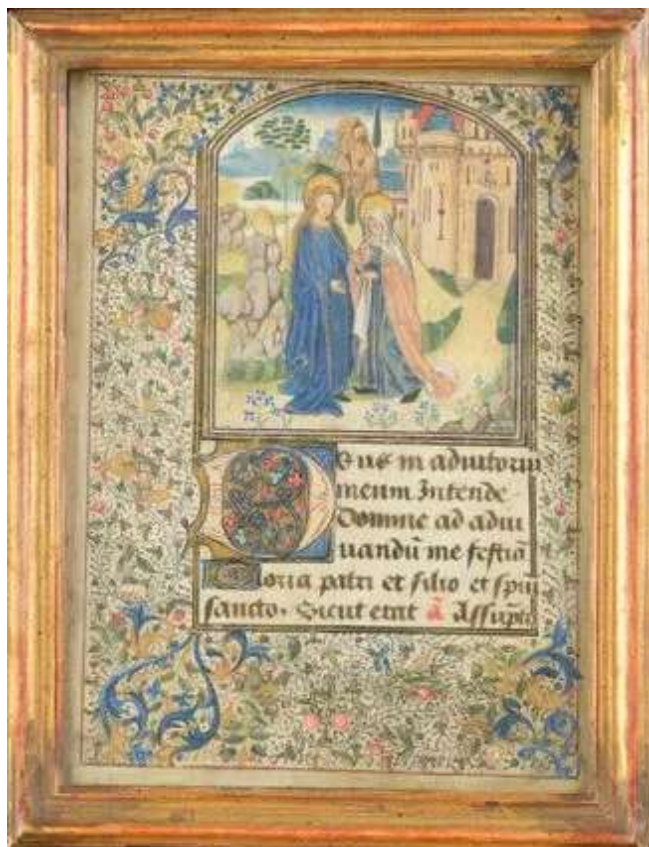 Deus in adiutoriū
meum Intende
Domine ad adiu
uandū me festiā
Gloria patri et filio et spiū
sancto. Sicut erat ā Assūpta